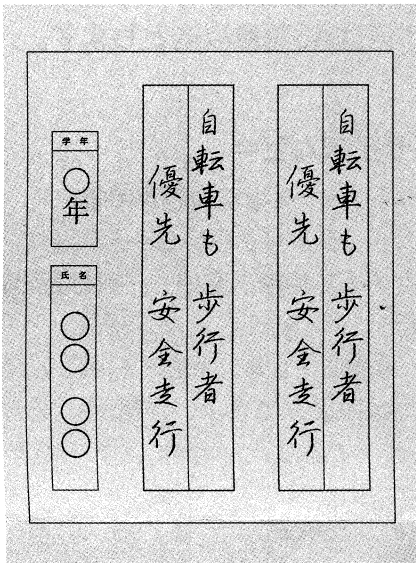 自転車も 歩行者
優先 安全走行
自転車も 歩行者
優先 安全走行
学年
〇年
氏名
〇〇 〇〇